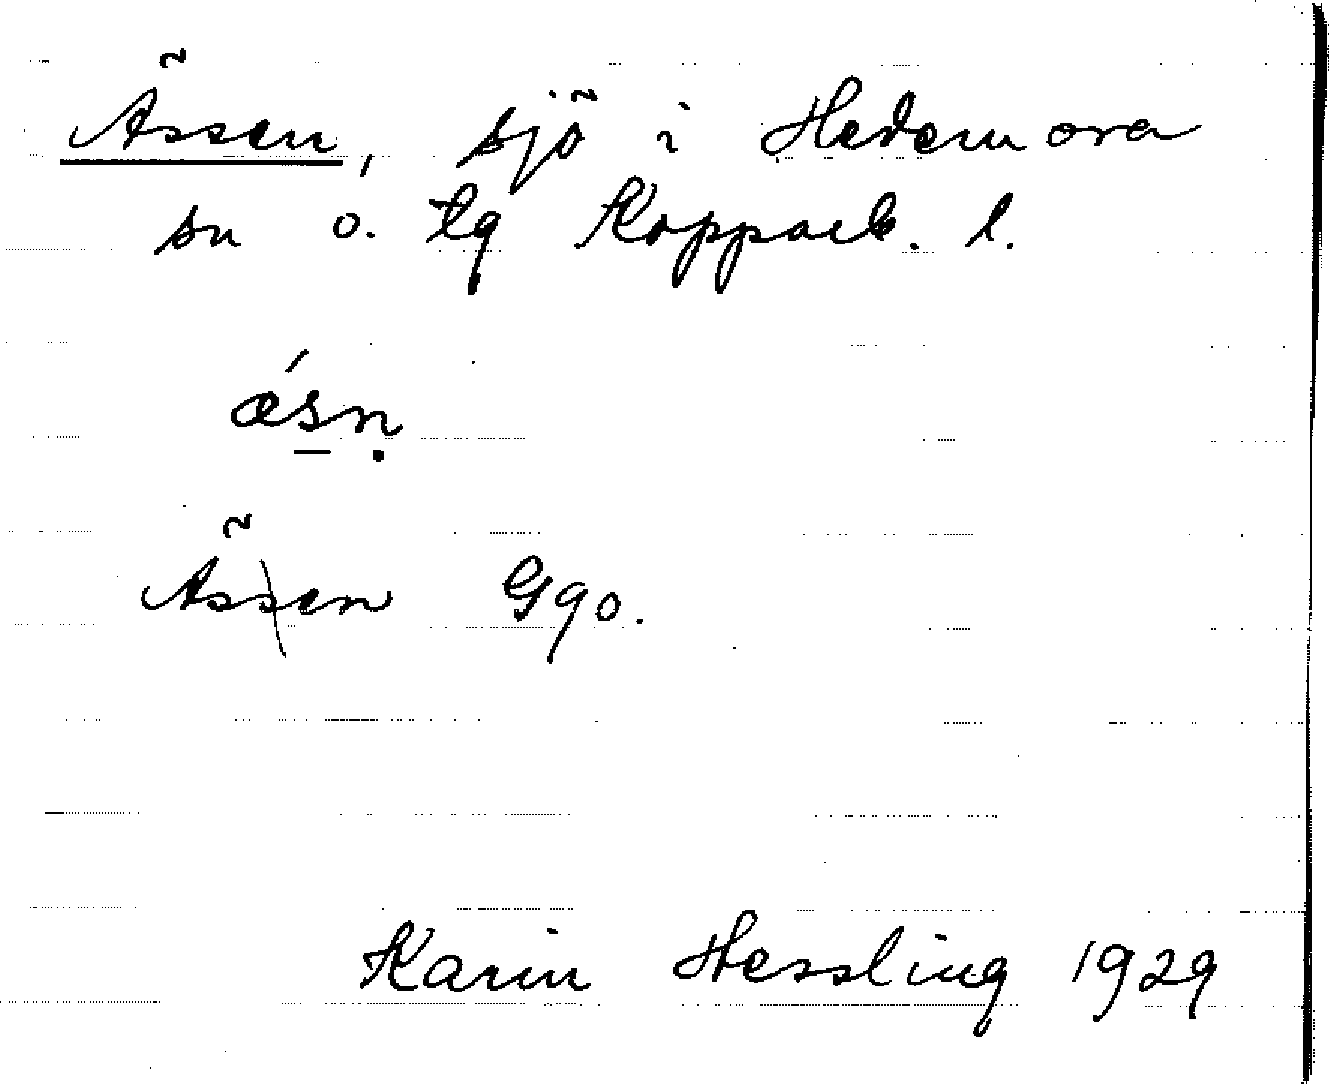 Ässen, sjö i Hedemora
sn o. tg Kopparb. l.
ǽs̱ṇ
Ässen Ggo.
Karin Hessling 1929